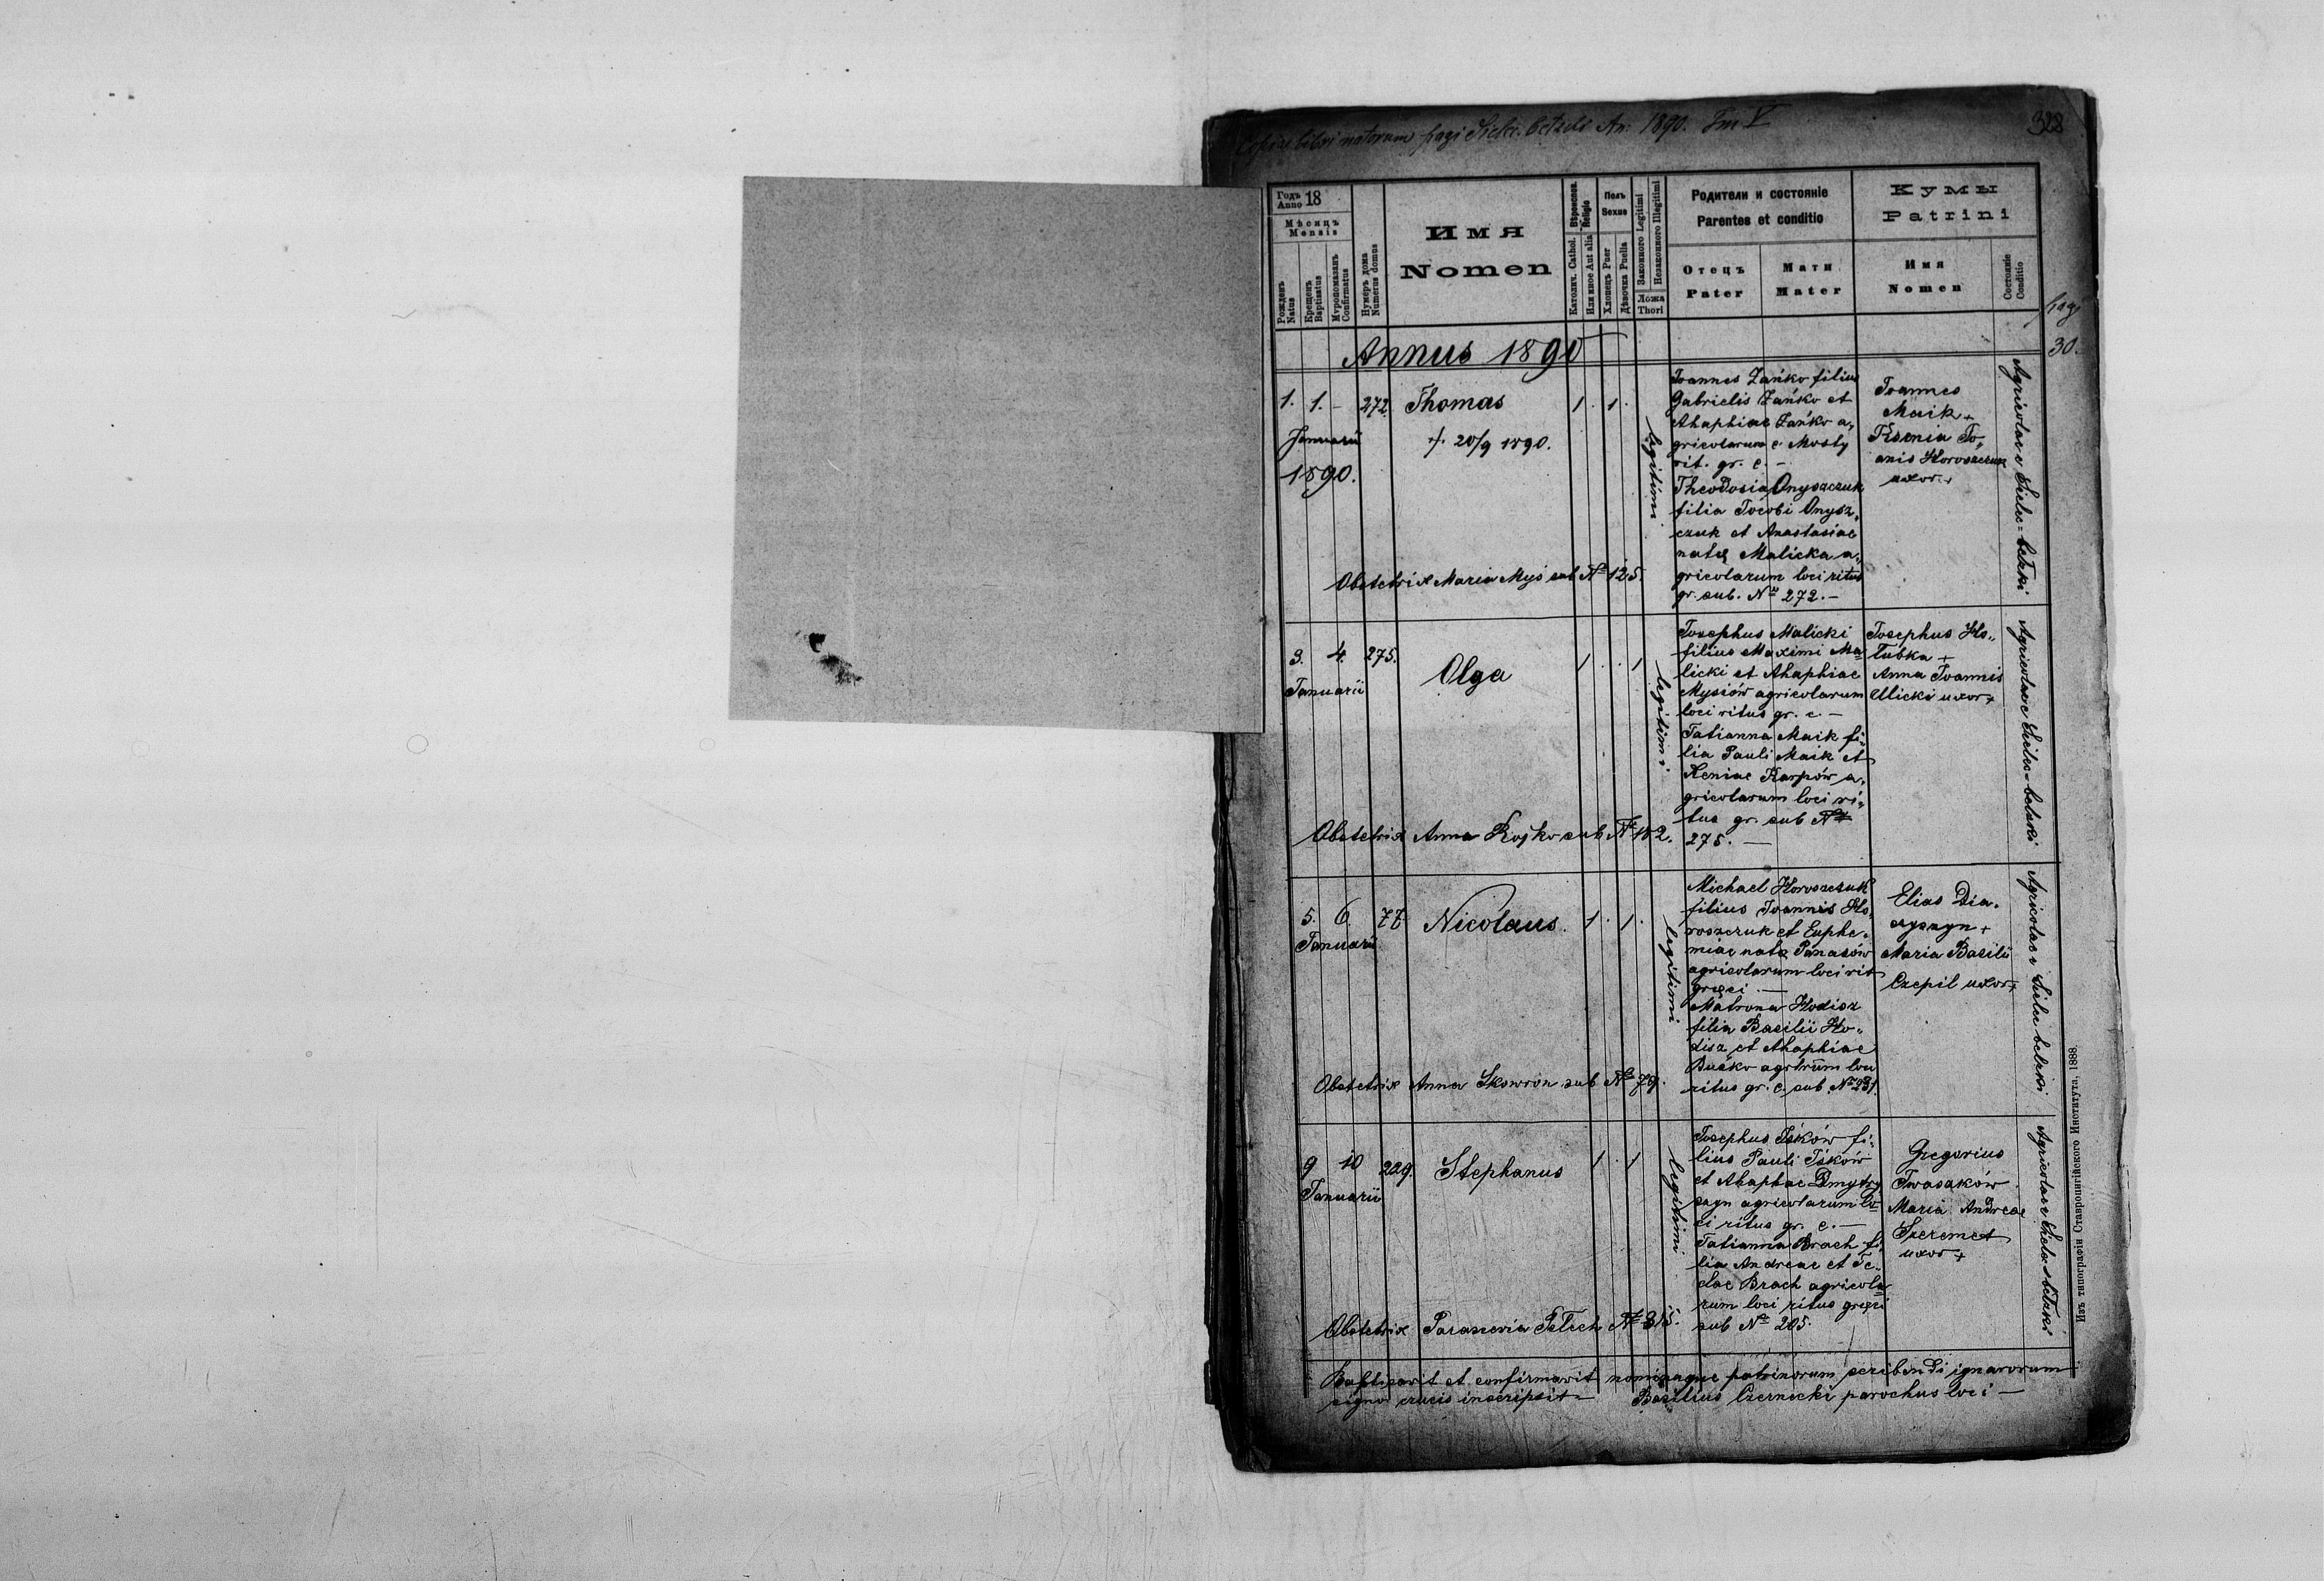 Copia libri natorum pagi Sielec bełzki An: 1890. Tm V
328
Годъ
Anno 18
Мѣсяцъ
Mensis
Рожденъ
Natus
Крещенъ
Baptisatus
Мѵропомазанъ
Confirmatus
Нумеръ дома
Numerus domus
Имя
Nomen
Вѣроиспов.
Religio
Католич. Cathol.
Или иное Aut alia
Полъ
Sexus
Хлопецъ Puer
Дѣвочка Puella
Законного Legitimi
Незаконного Illegitimi
Ложа
Thori
Родители и состоянiе
Parentes et conditio
Отецъ
Pater
Мати
Mater
Кумы
Patrini
Имя
Nomen
Состоянiе
Conditio
pag
30.
Annus 1890
1. 1. - 272. Thomas 1 . 1 .
Januarii
1890.
†. 20/9 1890.
legitimi
Joannes Zańko filius
Gabrielis Zańko et
Ahaphiae Zańko a„
gricolarum e Mosty
rit. gr. c. —
Theodosia Onyszczuk
filia Jacobi Onysz„
czuk et Anastasiae
natę Malicka a„
gricolarum loci ritus
gr. sub. No 272. —
Joannes
Maik +
Xsenia Jo„
anis Horoszczuk
uxor +
Agricolae Sielec=bełzki
Obstetrix Maria Myś sub No 125.
3. 4. 275. Olga 1 . . 1
Januarii
legitimi
Josephus Malicki
filius Maximi Ma„
licki et Ahaphiae
Mysiów agricolarum
loci ritus gr. c. —
Tatianna Maik fi„
lia Pauli Maik et
Xeniae Karpów a„
gricolarum loci ri„
tus gr. sub No
275. —
Josephus Ho„
łubka +
Anna Joannis
Ulicki uxor +
Agricolae Sielec=bełzki
Obstetrix Anna Rojko sub No 182.
5. 6. 77. Nicolaus. 1 . 1 .
Januarii
legitimi
Michael Horoszczuk
filius Joannis Ho„
roszczuk et Euphe„
miae natę Panasów
agricolarum loci rit
gręci —
Matrona Hodisz
filia Basilii Ho„
disz et Ahaphiae
Buśko agrłrum loci
ritus gr. c. sub No 231.
Elias Dia„
czyszyn +
Maria Basilii
Czepil uxor +
Agricolae Sielec bełzki
Obstetrix Anna Skowron sub No 79.
9 10 229. Stephanus 1 . 1
Januarii
legitimi
Josephus Iśków fi„
lius Pauli Iśków
et Ahaphae Dmytry
szyn agricolarum lo„
ci ritus gr. c. —
Tatianna Brach fi„
lia Andreae et Te„
clae Brach agricola„
rum loci ritus gręci
sub No 205.
Gregorius
Iwasaków
Maria Andreae
Szeremet
uxor +
Agricolae Sielec=bełzki
Obstetrix Parascevia Pełech No 315.
Baptisavit et confirmavit nominaque patrinorum scribendi ignarorum
signo crucis inscripsit — Basilius Czernecki parochus loci —
Изъ типографiи Ставропигiйского Института, 1888.